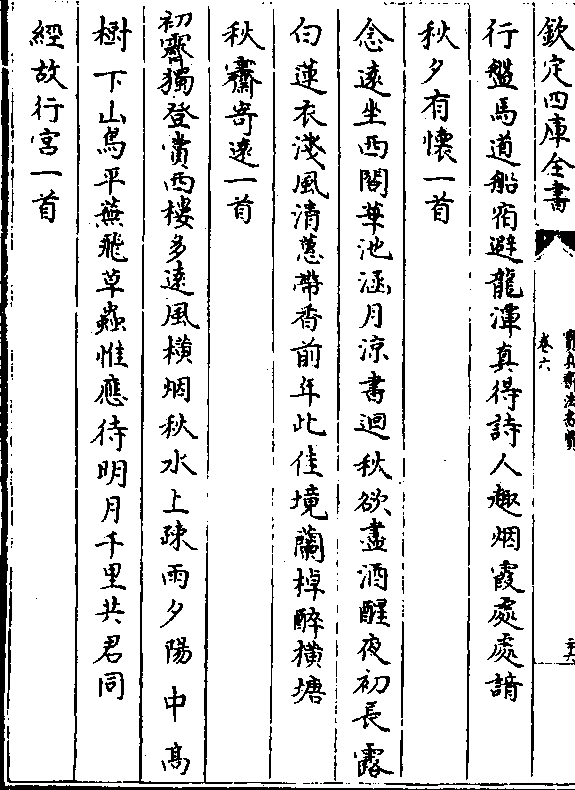 欽定四庫全書
寶真齋法書贊
卷六
行盤馬道船宿避龍潭真得詩人趣烟霞處處諳
秋夕有懷一首
念遠坐西閣華池涵月涼書迴秋欲盡酒醒夜初長露
白蓮衣淺風清蕙帶香前年此佳境蘭棹醉橫塘
秋齋寄遠一首
初霽獨登賞西樓多遠風橫烟秋水上疎雨夕陽中高
樹下山鳥平蕪飛草蟲惟應待明月千里共君同
經故行宮一首